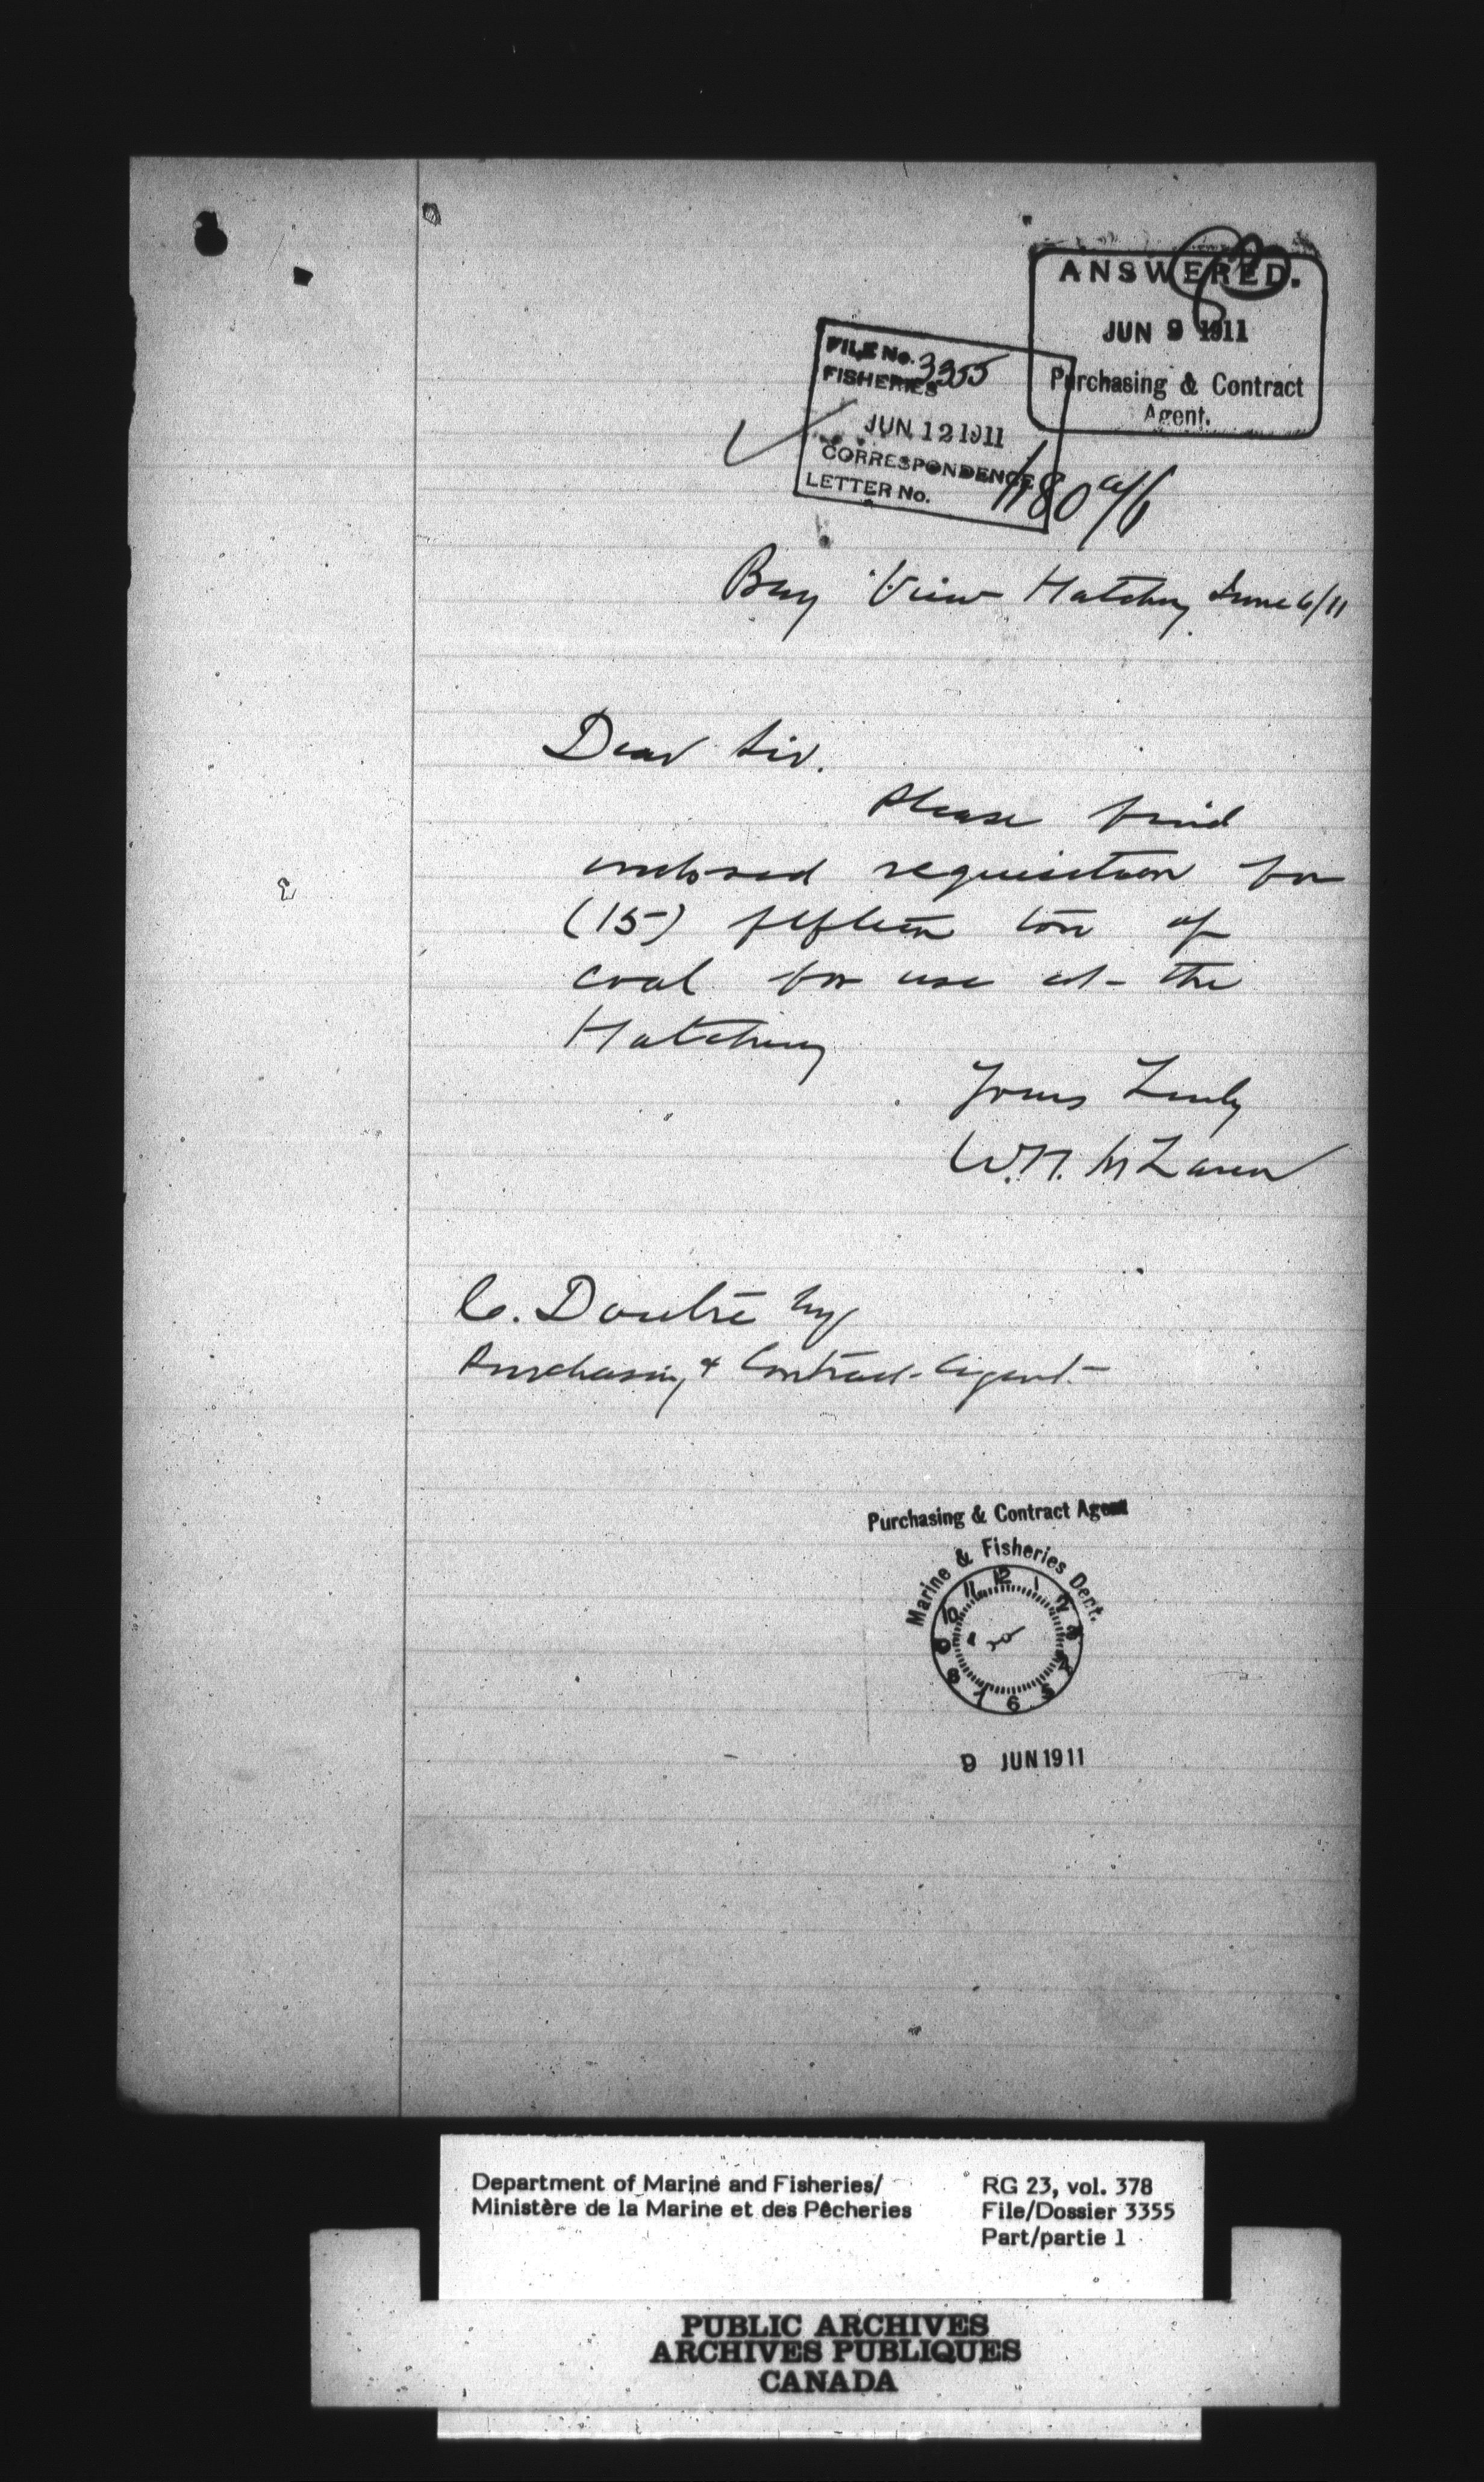 ANSWERED.
JUN 9 1911
Purchasing & Contract
Agent.
FILE No. 3355
FISHERIES
JUN 12 1911
CORRESPONDENCE
LETTER No. 1180
Bay View Hatchery June 6/11
Dear Sir.
Please find
enclosed requisition for
(15) fifteen ton of
coal for use at the
Hatchery
Yours Truly
W.H. McLaren
C. Doutre
Purchasing & Contract Agent
Purchasing & Contract Agent
Marine & Fisheries Dept.
12 1 2 3 4 5 6 7 8 9 10 11
9 JUN 1911
Department of Marine and Fisheries/
Ministère de la Marine et des Pêcheries
RG 23, vol. 378
File/Dossier 3355
Part/partie 1
PUBLIC ARCHIVES
ARCHIVES PUBLIQUES
CANADA